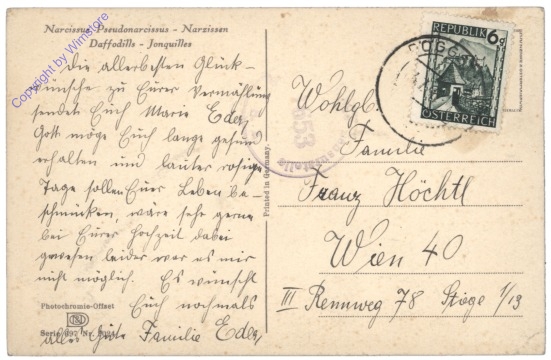 Narcissus Pseudonarcissus - Narzissen
Daffodills - Jonquilles
Die allerbesten Glück-
wünsche zu Eurer Vermählung
sendet Euch Marie Eder,
Gott möge Euch lange gesund
erhalten und lauter rosige
Tage sollen Euer Leben be-
schmücken, wäre sehr gerne
bei Eurer Hochzeit dabei
gewesen leider war es mir
nicht möglich. Es wünscht
Euch nochmals
alles Gute Familie Eder,
Photochromie-Offset
Serie 697 Nr.
Printed in Germany.
Copyright by Winstore
REPUBLIK 6g
ÖSTERREICH
553
Wohlgb.
Familie
Franz Höchtl
Wien 40
III Rennweg 78 Stiege 1/13